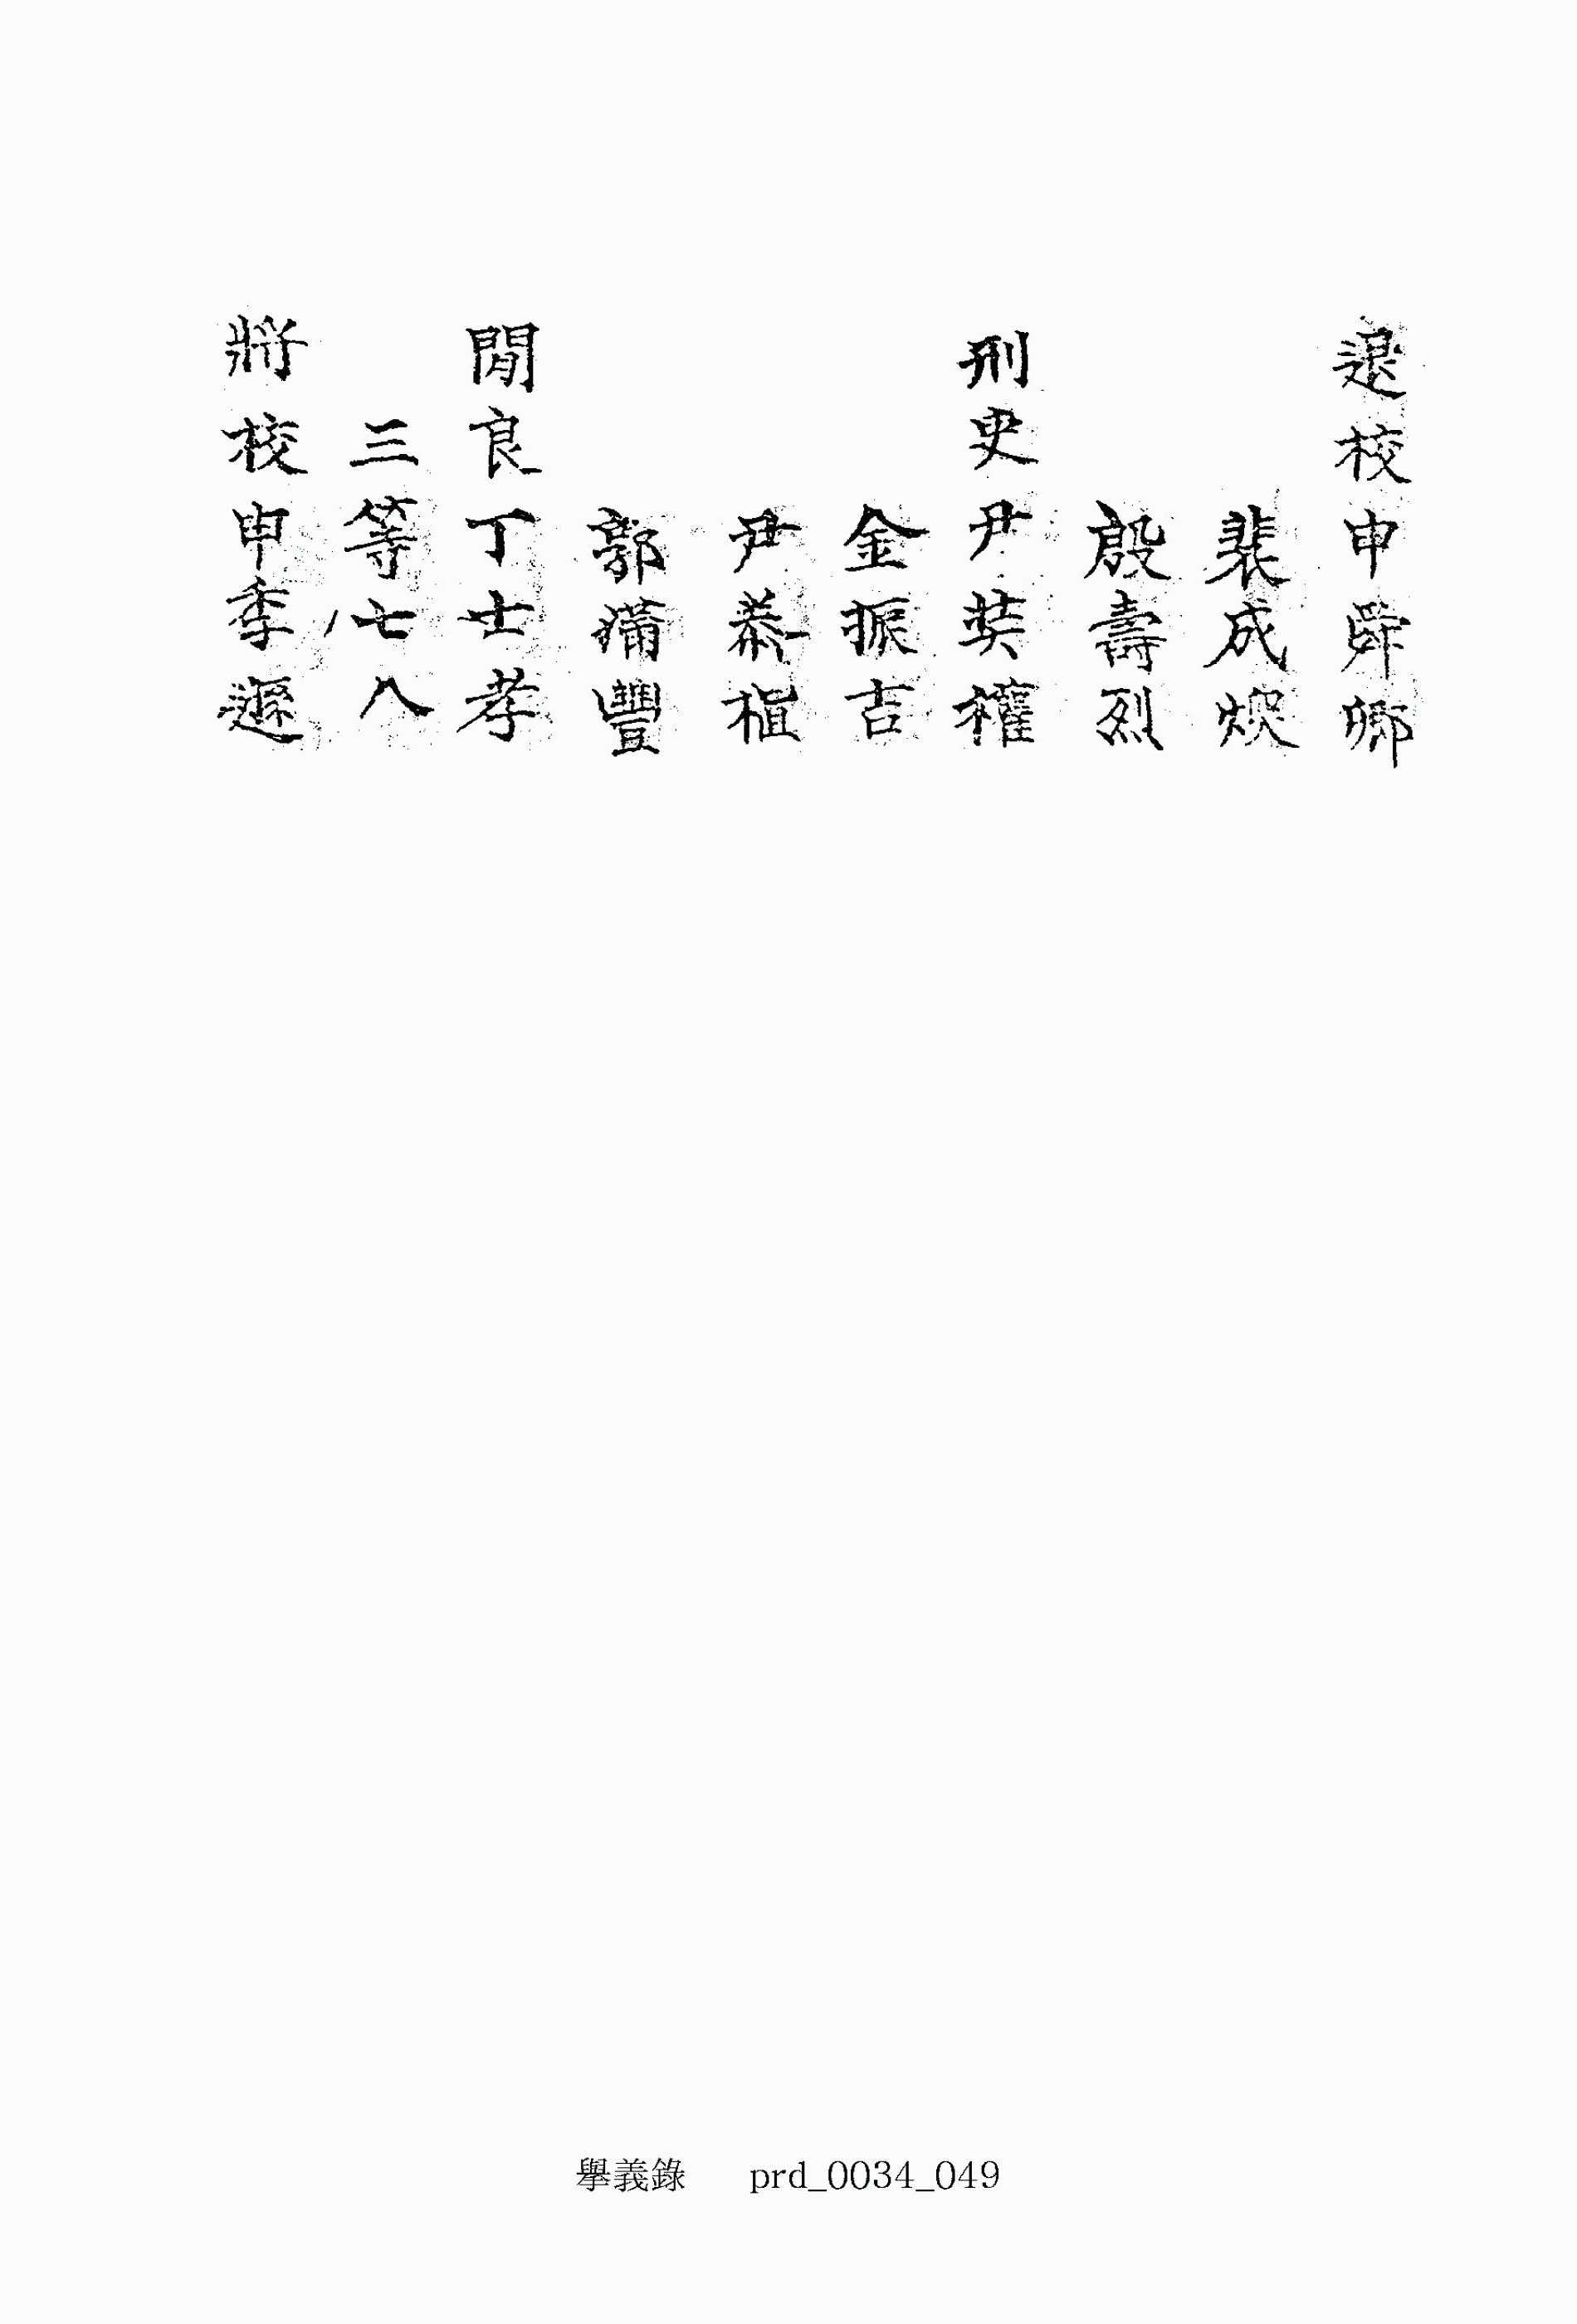 退校申舜卿
裴成煥
殷壽烈
刑吏尹英權
金振吉
尹泰植
郭滿豐
閒良丁士孝
三等七八
將校申季遜
擧義錄 prd_0034_049